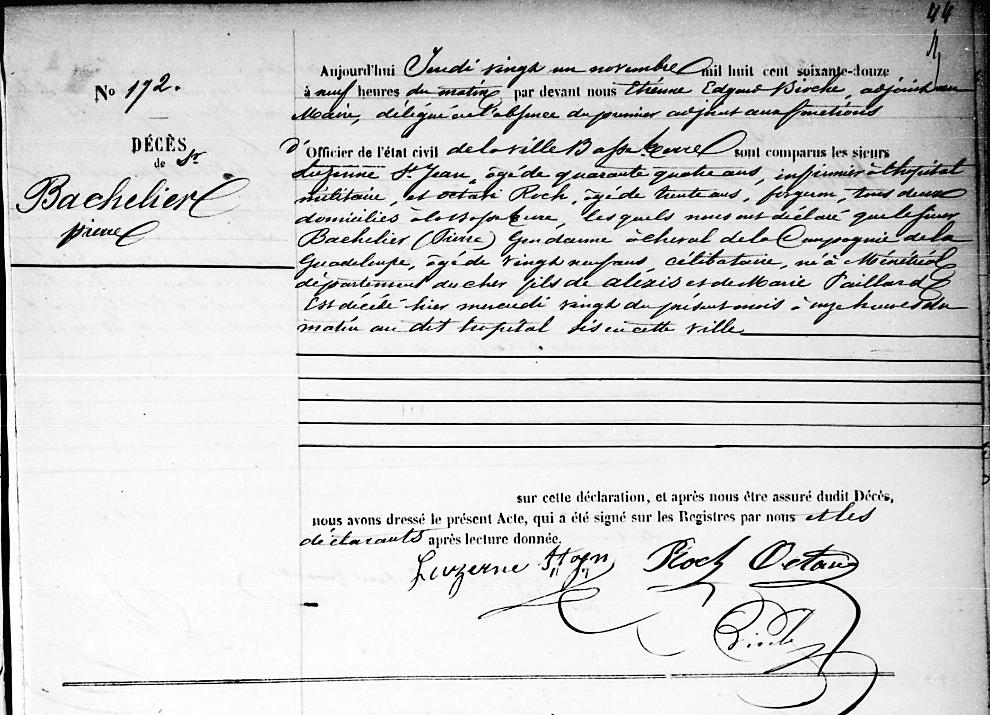 44
No 172.
DÉCÈS
de Sr
Bachelier
pierre
Aujourd'hui Jeudi vingt un novembre mil huit cent soixante-douze
à neuf heures du matin par devant nous Etienne Edgard Birche, adjoint au
Maire, délégué en l'absence du premier adjoint aux fonctions
d'Officier de l'état civil de la ville Basse terre sont comparus les sieurs
Luzerne St Jean, âgé de quarante quatre ans, infirmier à l'hopital
militaire, et octave Roch, âgé de trente ans, tous deux
domiciliés à la Basse terre, les quels nous ont déclaré que le sieur
Bachelier (Pierre) Gendarme à cheval de la Compagnie de la
Guadeloupe, âgé de vingt neuf ans, célibataire, né à Ménétréol
département du cher fils de alexis et de Marie Paillard
Est décédé hier mercredi vingt du présent mois à onze heures du
matin au dit hopital sis en cette ville
sur cette déclaration, et après nous être assuré dudit Décès,
nous avons dressé le présent Acte, qui a été signé sur les Registres par nous et les
déclarants après lecture donnée.
Luzerne Roch Octave